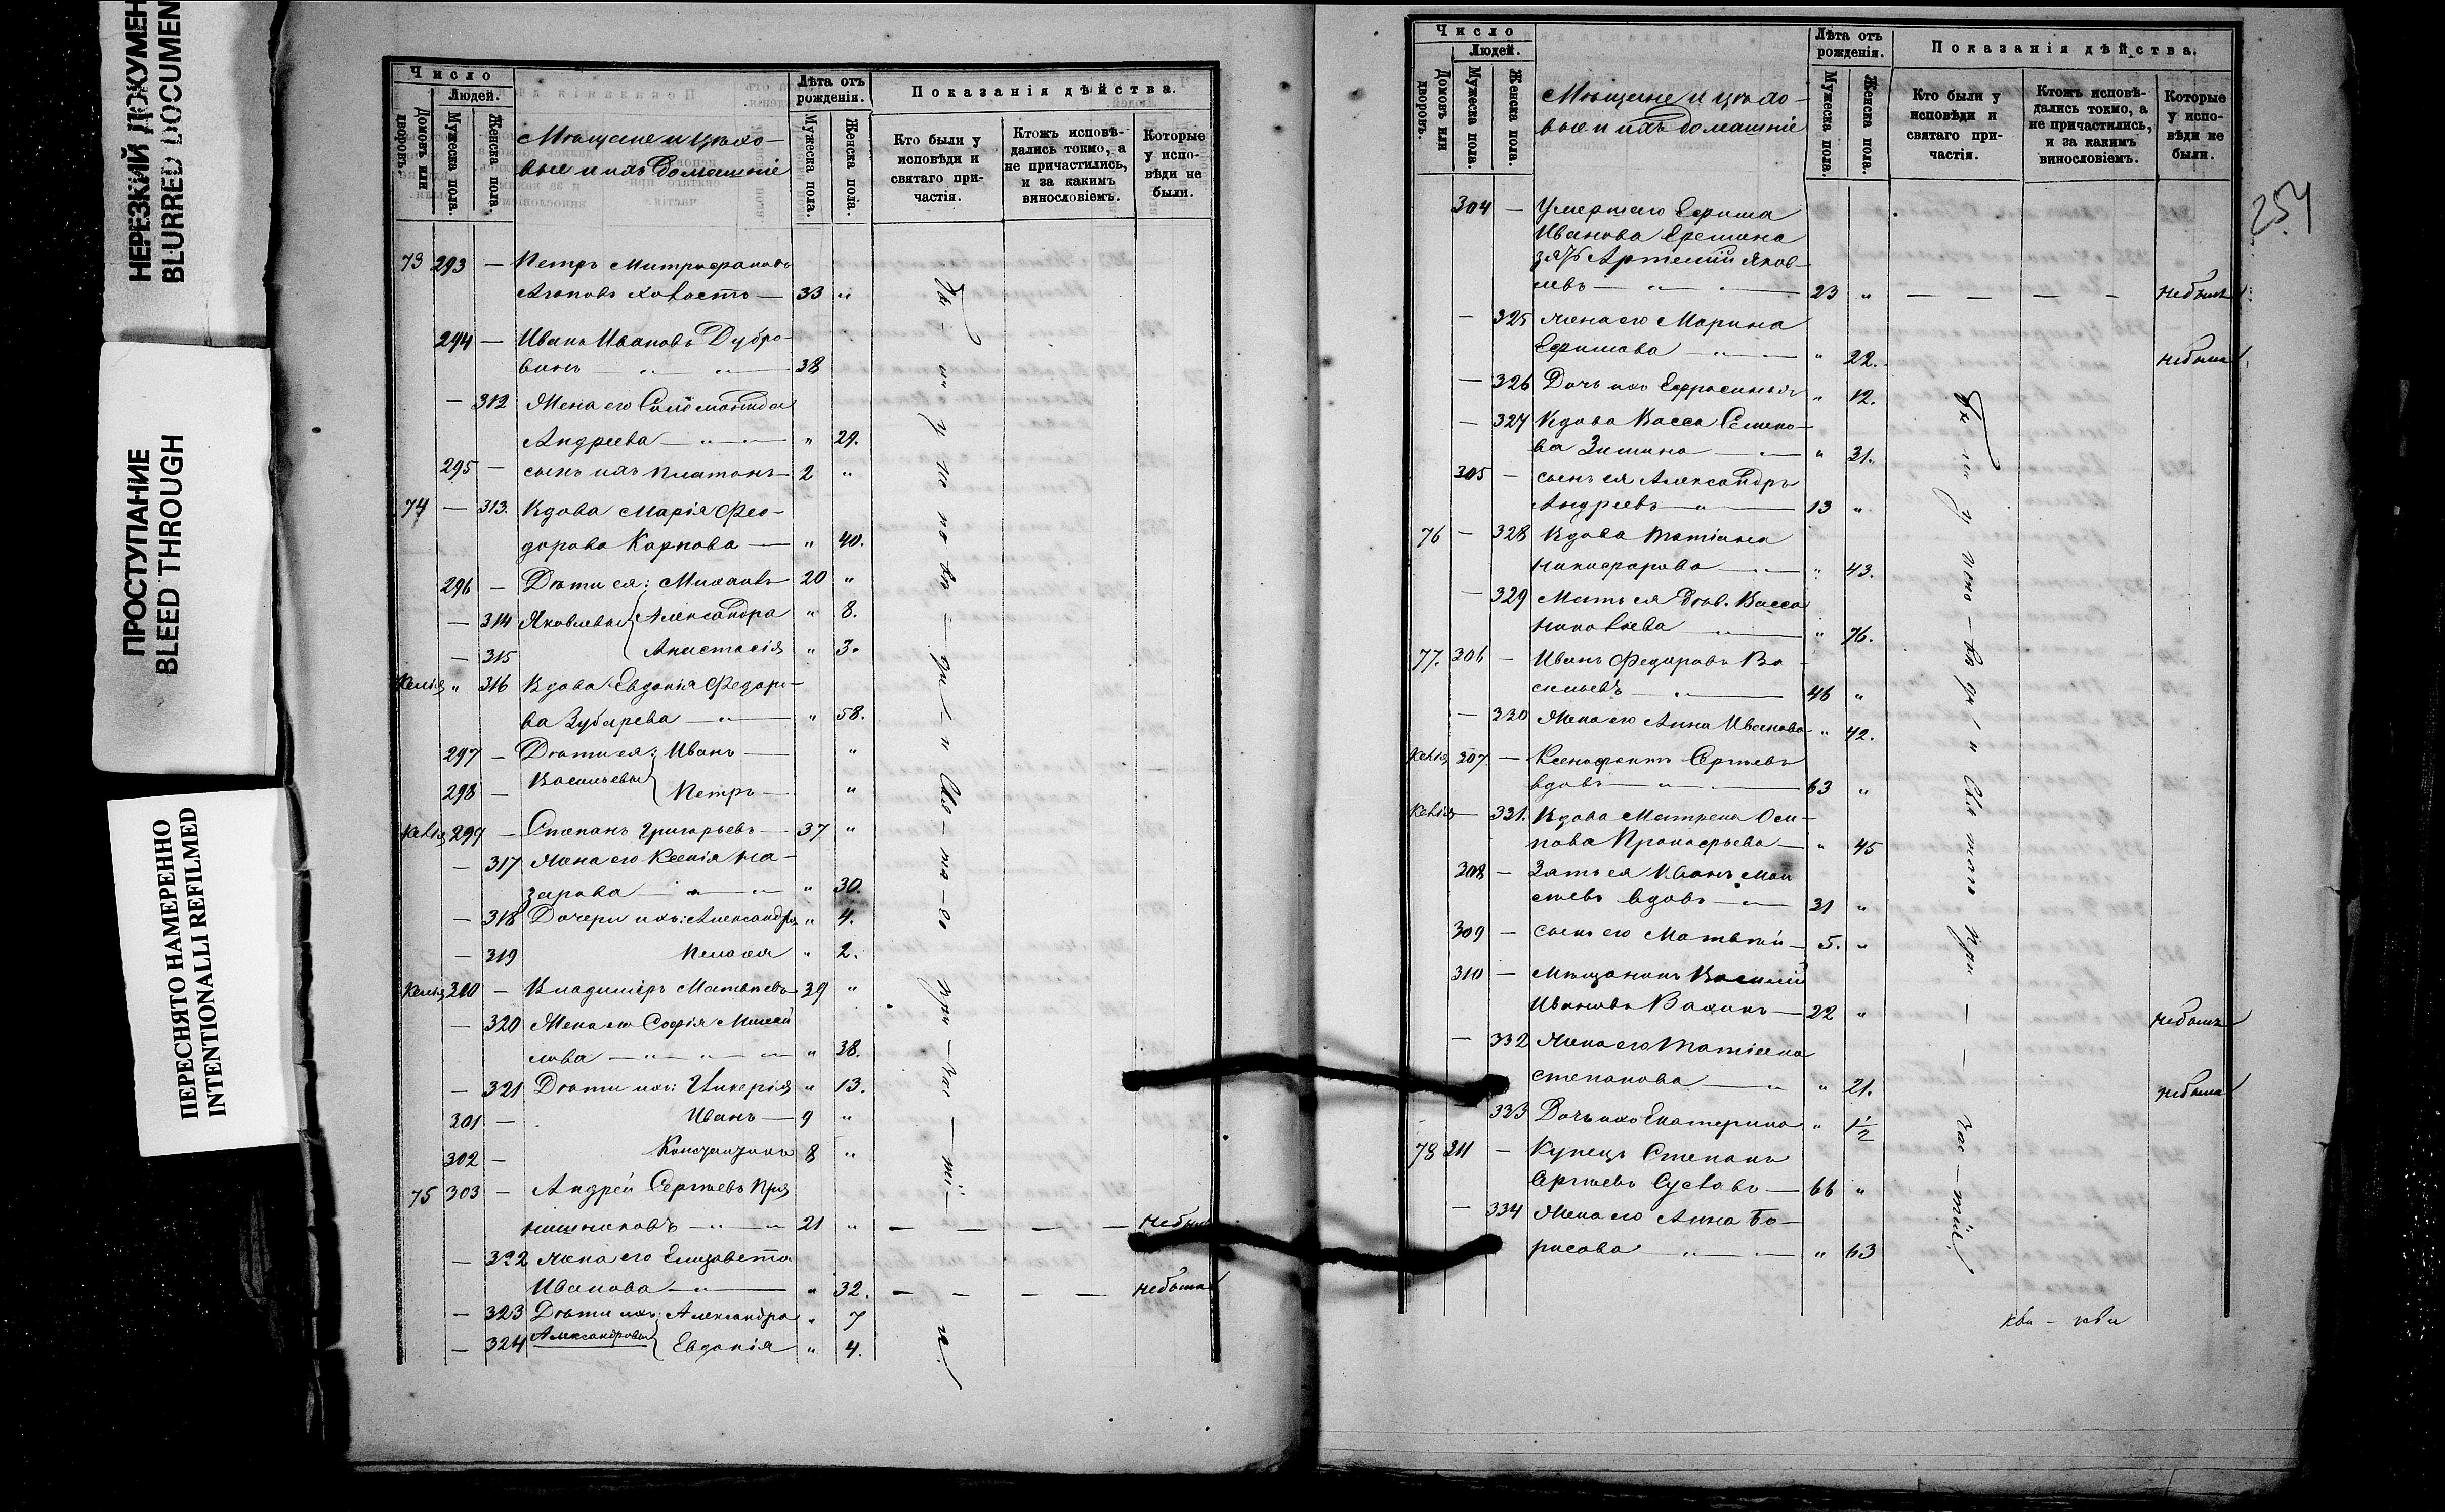 НЕРЕЗКИЙ ДОКУМЕН
BLURRED DOCUMEN
ПРОСТУПАНИЕ
BLEED THROUGH
ПЕРЕСНЯТО НАМЕРЕННО
INTENTIONALLI REFILMED
Число
Людей.
Домовъ или дворовъ.
Мужеска пола.
Женска пола.
Мѣщане и цѣхо-
вые и ихъ домашніе
Лѣта отъ рожденія.
Мужеска пола.
Женска пола.
Показанія дѣйства.
Кто были у исповѣди и святаго при-частія.
Ктожъ исповѣ-дались токмо, а не причастились, и за какимъ винословіемъ.
Которые у испо-вѣди не были.
73 293 — Петръ Митрофановъ
— 33 „
294 — Иванъ Ивановъ Дубро-
винъ — „ — „ — 38
— 312 Жена его Соломонида
Андреева — „ — „ 29.
295 — сынъ ихъ Платонъ — 2 „
74 — 313. Вдова Марія Фео-
дорова Карпова — „ 40.
296 — Дѣти ея: Михаилъ 20 „
— 314 Яковлевы Александра „ 8.
— 315 Анастасія „ 3.
Келія „ 316 Вдова Евдокія Федоро-
ва Зубарева — „ — „ 58.
297 — Дѣти ея: Иванъ — „
298 — Васильевы Петръ — „
Келія 299 — Степанъ Григорьевъ — 37 „
— 317 Жена его Ксенія На-
зарова — „ — „ 30.
— 318 Дочери ихъ: Александра „ 4.
— 319 Пелагея „ 2.
Келія 300 — Владиміръ Матвѣевъ 39 „
— 320 Жена его Софія Михай
лова — „ — „ — „ 38.
— 321 Дѣти ихъ: Гликерія „ 13.
301 — Иванъ — 9 „
302 — Константинъ 8 „
75 303 — Андрей Сергѣевъ Пря
нишниковъ — „ — „ 21 „ — — — — небылъ
— 322 Жена его Елизавета
Иванова — „ — „ 32. — — — — небыла
— 323 Дѣти ихъ: Александра „ 7
— 324 Александровы Евдокія „ 4.
Бы — ли у ис по вѣ — ди — и Свя — та — го при — час — ті — я.
Число
Людей.
Домовъ или дворовъ.
Мужеска пола.
Женска пола.
Мѣщане и цѣхо-
вые и ихъ домашніе
Лѣта отъ рожденія.
Мужеска пола.
Женска пола.
Показанія дѣйства.
Кто были у исповѣди и святаго при-частія.
Ктожъ исповѣ-дались токмо, а не причастились, и за какимъ винословіемъ.
Которые у испо-вѣди не были.
254
304 — Умершаго Ефима
Иванова Еремина
зять Артемій Яков-
левъ — „ — „ — 23 „ — — — — небылъ
— 325 Жена его Марина
Ефимова — „ — „ 22. небыла
— 326 Дочь ихъ Ефросинія „ 12.
— 327 Вдова Васса Семено-
ва Зимина — „ — „ 31.
305 — сынъ ея Александръ
Андреевъ — „ — 13 „
76 — 328 Вдова Татіана
Никифорова — „ — „ 43.
— 329 Мать ея вдов. Васса
Николаева — „ — „ 76.
77. 306 — Иванъ Федоровъ Ва-
сильевъ — „ — 46 „
— 330 Жена его Анна Иванова „ 42.
Келія 307 — Ксенофонтъ Сергѣевъ
вдовъ — „ — 63 „
Келія — 331. Вдова Матрена Оси-
пова Прокофьева — „ 45
308 — Зять ея Иванъ Мои
сѣевъ вдовъ — „ 31 „
309 — сынъ его Матвѣй — 5. „
310 — Мѣщанинъ Василій
Ивановъ Вахинъ — 22 „ — небылъ
— 332 Жена его Татіана
Степанова — „ „ 21. — небыла
333 Дочь ихъ Екатерина „ 1½
78 311 — Купецъ Степанъ
Сергѣевъ Сусловъ — 66 „
— 334 Жена его Анна Бо-
рисова — „ — „ 63
Бы ли у испо — вѣ ди и Свя таго при — час — тія.